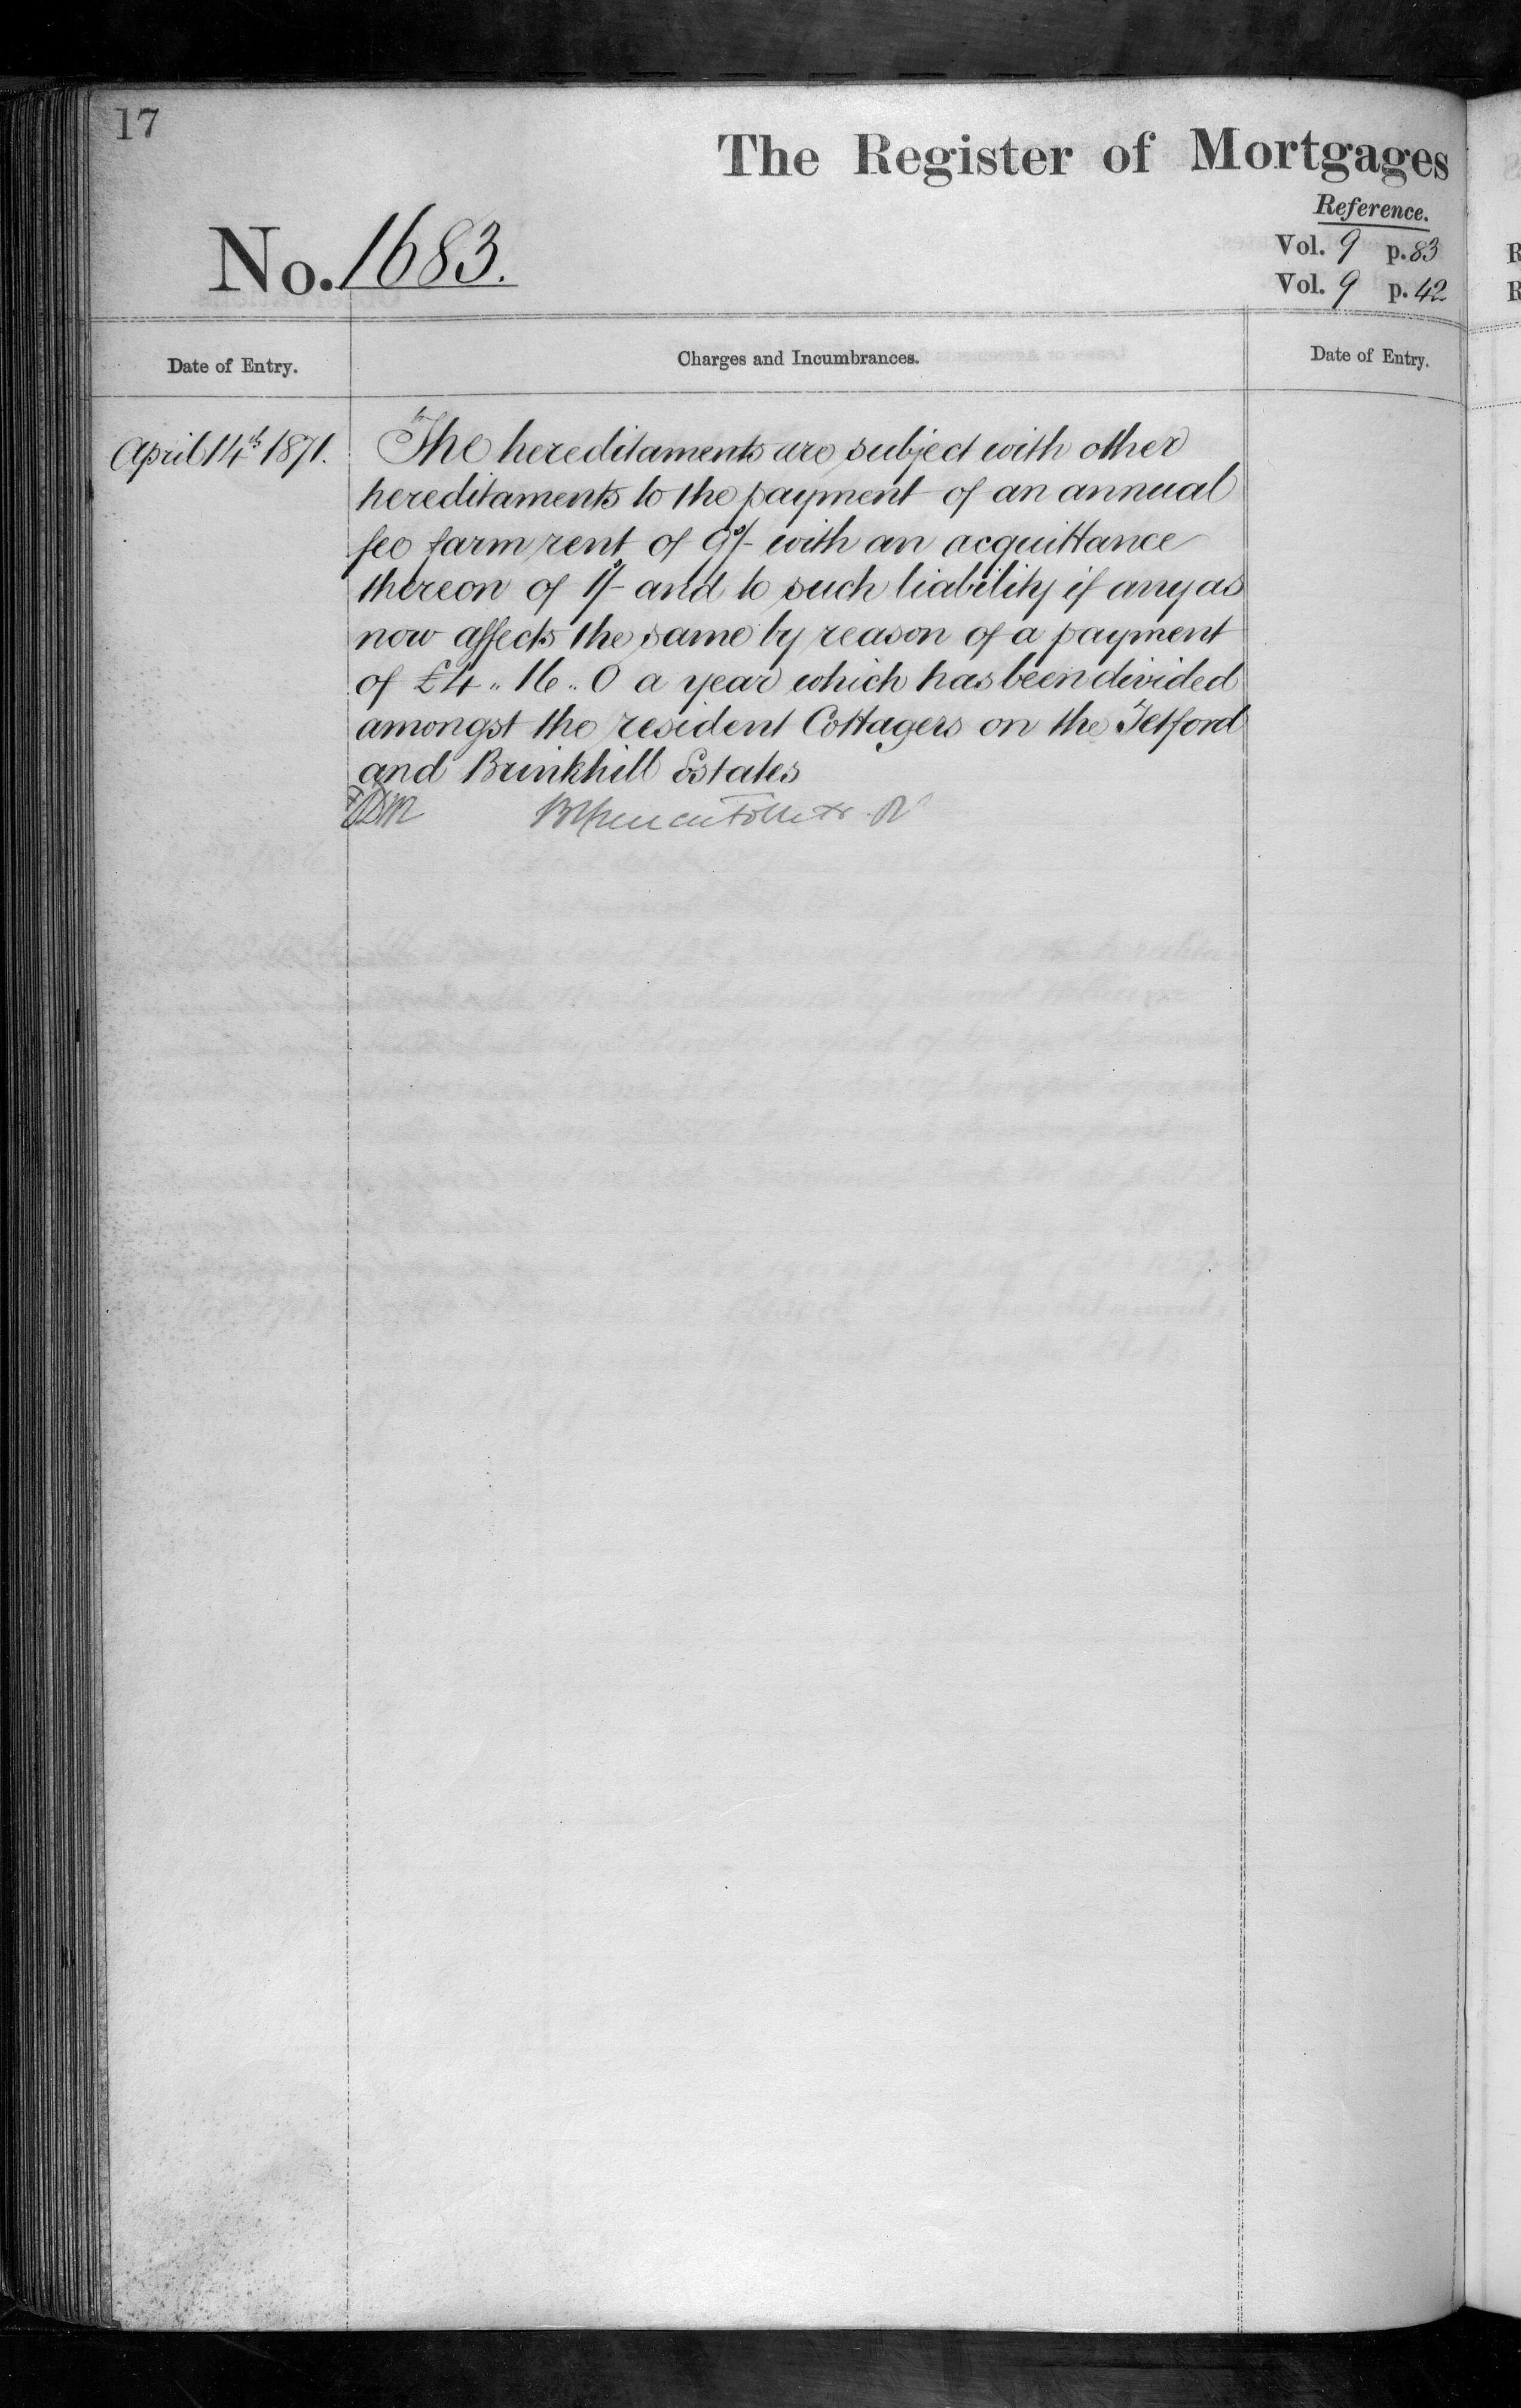 17
The Register of Mortgages
Reference.
No. 1683.
Vol. 9 p. 83
Vol. 9 p. 42
Date of Entry.
Charges and Incumbrances.
Date of Entry.
April 14th 1871.
The hereditaments are subject with other
hereditaments to the payment of an annual
fee farm rent of 9s/- with an acquittance
thereon of 1s/- and to such liability if any as
now affects the same by reason of a payment
of £4 .. 16 .. 0 a year which has been divided
amongst the resident Cottagers on the Tetford
and Brinkhill Estates